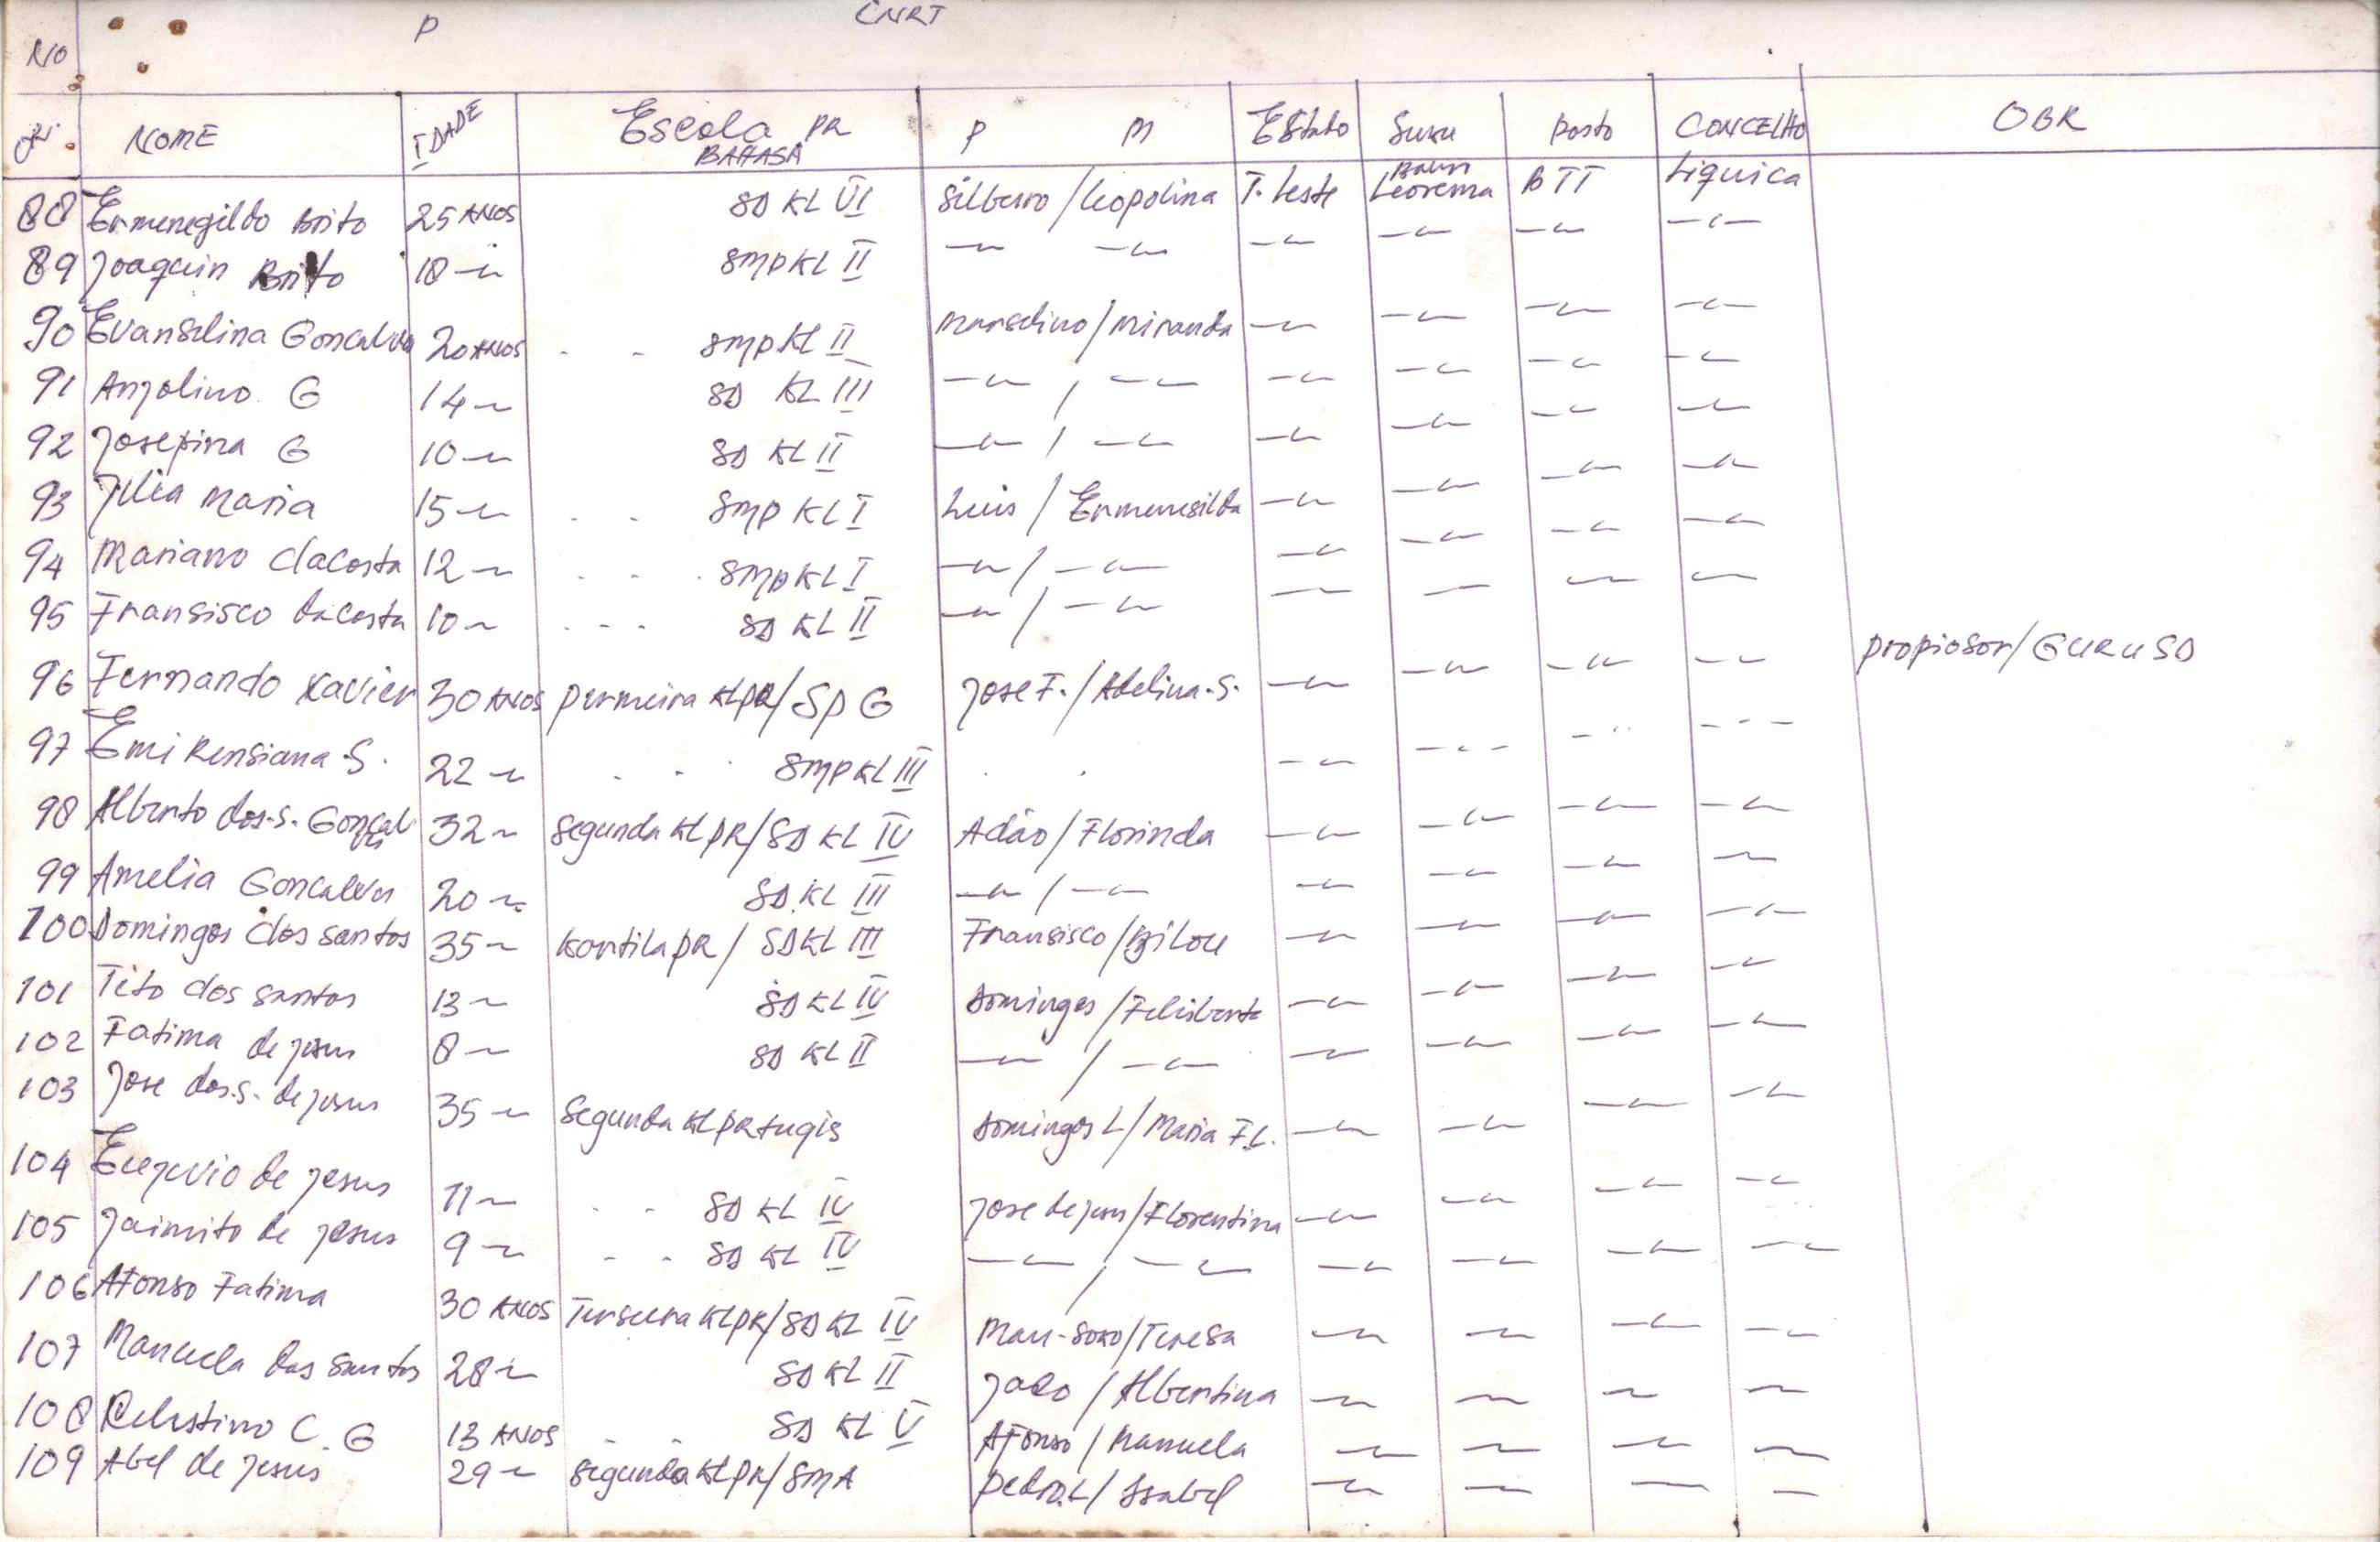 P CNRT
NO
NOME IDADE Escola PR BAHASA P M Estado Suku Posto CONCELHO OBR
88 Ermenegildo Brito 25 ANOS SD KL VI Silberio / Leopolina T. Leste Leorema BTT Liquica
89 Joaquin Brito 18 -"- SMP KL II -"- -"- -"- -"- -"- -"-
90 Evanselina Goncalves 20 ANOS - - SMP KL II Marselino / Miranda -"- -"- -"- -"-
91 Anjolino G 14 -"- SD KL III -"- / -"- -"- -"- -"- -"-
92 Josepina G 10 -"- SD KL II -"- / -"- -"- -"- -"- -"-
93 Julia Maria 15 -"- - - SMP KL I Luis / Ermenesilda -"- -"- -"- -"-
94 Mariano dacosta 12 -"- - - - SMP KL I -"- / -"- -"- -"- -"- -"-
95 Fransisco dacosta 10 -"- - - - SD KL II -"- / -"- -"- -"- -"- -"-
96 Fernando Xavier 30 ANOS Permeira KL PR / SPG Jose F. / Adelina .S. -"- -"- -"- -"- propiosor / GURU SD
97 Emi Rensiana .S. 22 -"- - - - SMP KL III - - -"- -"- -"- -"-
98 Alberto dos.s. Gonçalves 32 -"- Segunda KL PR / SD KL IV Adão / Florinda -"- -"- -"- -"-
99 Amelia Goncalves 20 -"- SD KL III -"- / -"- -"- -"- -"- -"-
100 Domingos dos santos 35 -"- kartila PR / SD KL III Fransisco / Bilou -"- -"- -"- -"-
101 Tito dos santos 13 -"- SD KL IV Domingos / Felisberta -"- -"- -"- -"-
102 Fatima de jesus 8 -"- SD KL II -"- / -"- -"- -"- -"- -"-
103 Jose dos.s. de jesus 35 -"- Segunda KL PRtugis Domingos L / Maria F.L. -"- -"- -"- -"-
104 de jesus 11 -"- - - SD KL IV Jose de jesus / Florentina -"- -"- -"- -"-
105 Jaimito de jesus 9 -"- - - SD KL IV -"- / -"- -"- -"- -"- -"-
106 Afonso Fatima 30 ANOS Terseira KL PR / SD KL IV Mau-Soko / Teresa -"- -"- -"- -"-
107 Manuela dos santos 28 -"- SD KL II / Albertina -"- -"- -"- -"-
108 Celestino C. G 13 ANOS - - SD KL V Afonso / Manuela -"- -"- -"- -"-
109 Abel de jesus 29 -"- Segunda KL PR / SMA Pedro.L / Isabel -"- -"- -"- -"-